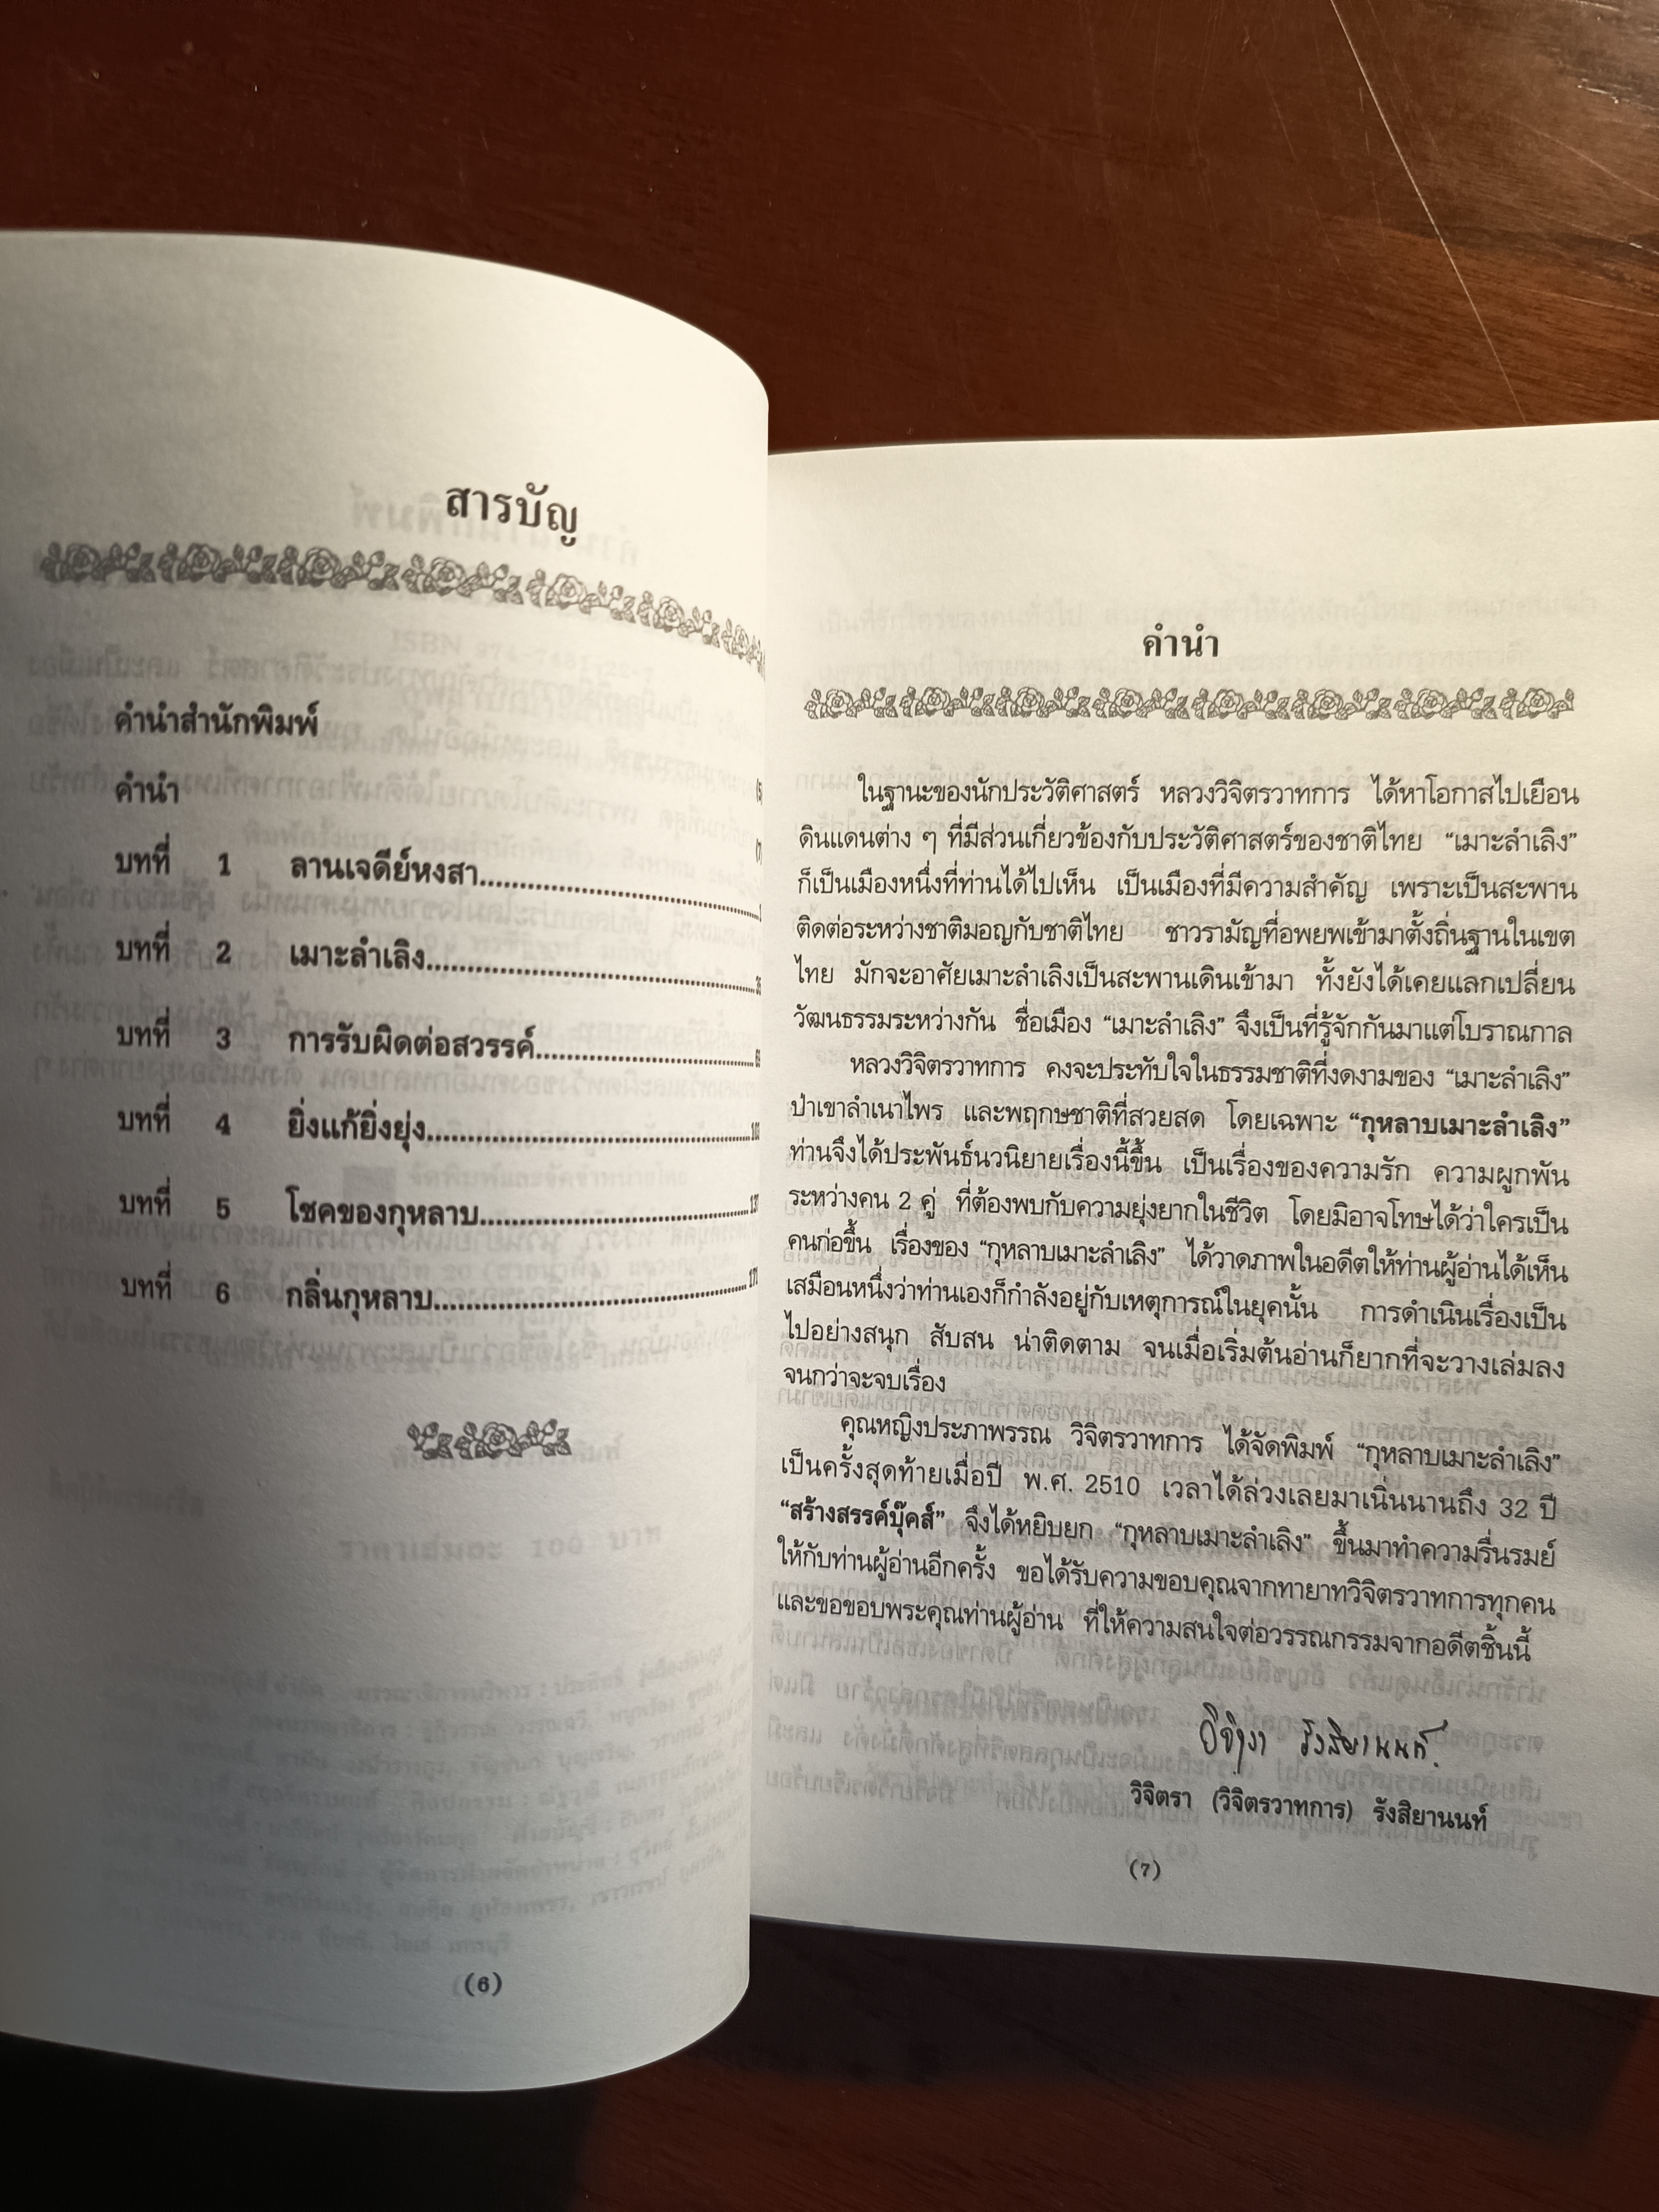 สารบัญ
คำนำสำนักพิมพ์
คำนำ
บทที่ 1 ลานเจดีย์หงสา
บทที่ 2 เมาะลำเลิง
บทที่ 3 การรับผิดต่อสวรรค์
บทที่ 4 ยิ่งแก้ยิ่งยุ่ง
บทที่ 5 โชคของกุหลาบ
บทที่ 6 กลิ่นกุหลาบ
(6)
คำนำ
ในฐานะของนักประวัติศาสตร์ หลวงวิจิตรวาทการ ได้หาโอกาสไปเยือน
ดินแดนต่าง ๆ ที่มีส่วนเกี่ยวข้องกับประวัติศาสตร์ของชาติไทย “เมาะลำเลิง”
ก็เป็นเมืองหนึ่งที่ท่านได้ไปเห็น เป็นเมืองที่มีความสำคัญ เพราะเป็นสะพาน
ติดต่อระหว่างชาติมอญกับชาติไทย ชาวรามัญที่อพยพเข้ามาตั้งถิ่นฐานในเขต
ไทย มักจะอาศัยเมาะลำเลิงเป็นสะพานเดินเข้ามา ทั้งยังได้เคยแลกเปลี่ยน
วัฒนธรรมระหว่างกัน ชื่อเมือง “เมาะลำเลิง” จึงเป็นที่รู้จักกันมาแต่โบราณกาล
หลวงวิจิตรวาทการ คงจะประทับใจในธรรมชาติที่งดงามของ “เมาะลำเลิง”
ป่าเขาลำเนาไพร และพฤกษชาติที่สวยสด โดยเฉพาะ “กุหลาบเมาะลำเลิง”
ท่านจึงได้ประพันธ์นวนิยายเรื่องนี้ขึ้น เป็นเรื่องของความรัก ความผูกพัน
ระหว่างคน 2 คู่ ที่ต้องพบกับความยุ่งยากในชีวิต โดยมิอาจโทษได้ว่าใครเป็น
คนก่อขึ้น เรื่องของ “กุหลาบเมาะลำเลิง” ได้วาดภาพในอดีตให้ท่านผู้อ่านได้เห็น
เสมือนหนึ่งว่าท่านเองก็กำลังอยู่กับเหตุการณ์ในยุคนั้น การดำเนินเรื่องเป็น
ไปอย่างสนุก สับสน น่าติดตาม จนเมื่อเริ่มต้นอ่านก็ยากที่จะวางเล่มลง
จนกว่าจะจบเรื่อง
คุณหญิงประภาพรรณ วิจิตรวาทการ ได้จัดพิมพ์ “กุหลาบเมาะลำเลิง”
เป็นครั้งสุดท้ายเมื่อปี พ.ศ. 2510 เวลาได้ล่วงเลยมาเนิ่นนานถึง 32 ปี
“สร้างสรรค์บุ๊คส์” จึงได้หยิบยก “กุหลาบเมาะลำเลิง” ขึ้นมาทำความรื่นรมย์
ให้กับท่านผู้อ่านอีกครั้ง ขอได้รับความขอบคุณจากทายาทวิจิตรวาทการทุกคน
และขอขอบพระคุณท่านผู้อ่าน ที่ให้ความสนใจต่อวรรณกรรมจากอดีตชิ้นนี้
วิจิตรา รังสิยานนท์
วิจิตรา (วิจิตรวาทการ) รังสิยานนท์
(7)